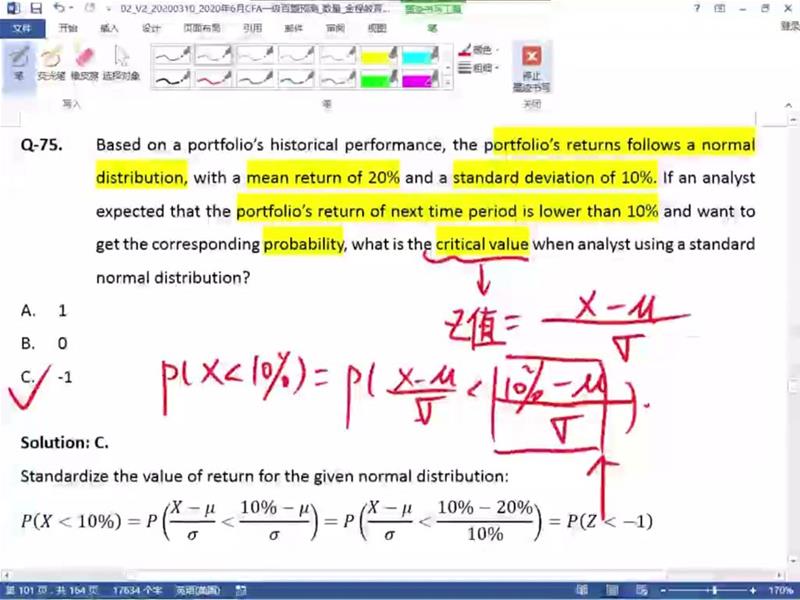 02_V2_20200310_2020年6月CFA一级百题预测_数量_金程教育...
墨迹书写工具
文件 开始 插入 设计 引用 邮件 审阅 视图 笔
登录
笔 荧光笔 橡皮擦 选择对象
颜色
粗细
停止
墨迹书写
写入 笔 关闭
Q-75. Based on a portfolio's historical performance, the portfolio's returns follows a normal
distribution, with a mean return of 20% and a standard deviation of 10%. If an analyst
expected that the portfolio's return of next time period is lower than 10% and want to
get the corresponding probability, what is the critical value when analyst using a standard
normal distribution?
A. 1
B. 0
C. -1
Z值 = X-μ / σ
P(X<10%) = P( X-μ / σ < 10%-μ / σ ).
Solution: C.
Standardize the value of return for the given normal distribution:
P(X < 10%) = P((X − μ)/σ < (10% − μ)/σ) = P((X − μ)/σ < (10% − 20%)/10%) = P(Z < −1)
第 101 页，共 164 页 17634 个字 英语(美国) 170%